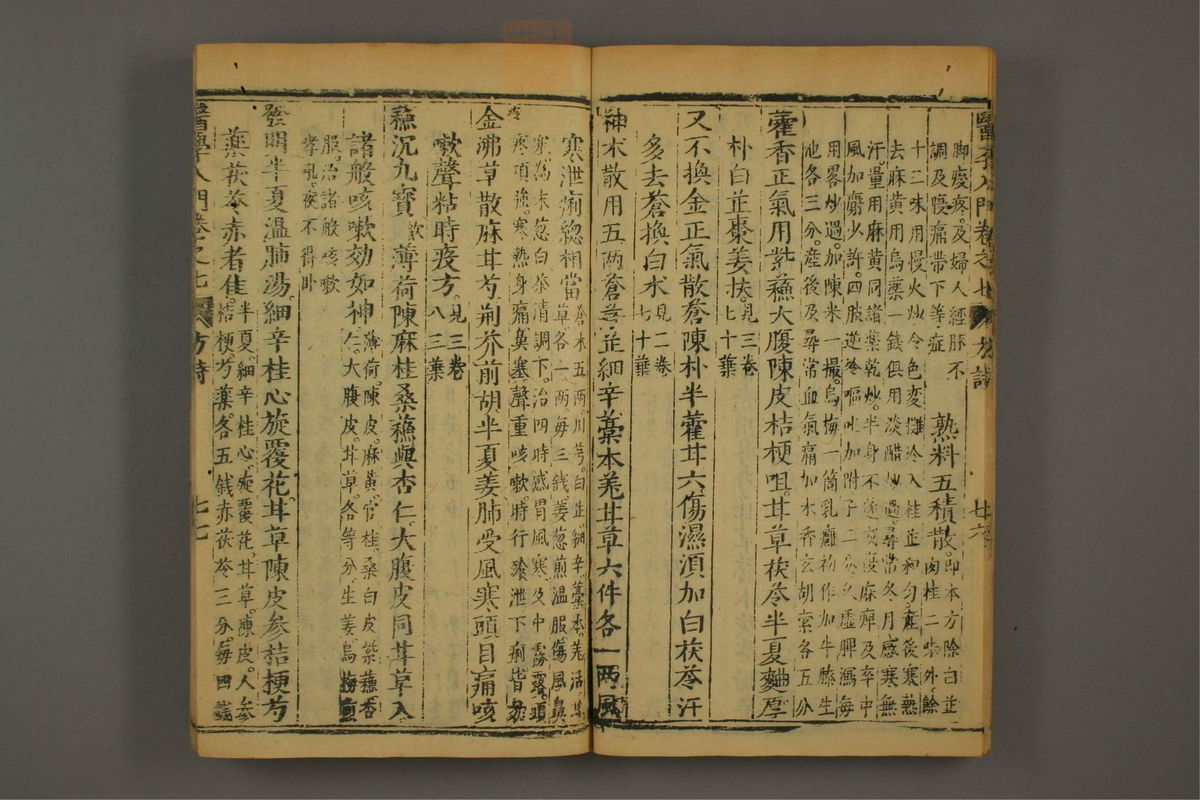 醫學入門卷之七 方詩 七十六
脚疲疼及婦人經脉不
調及腹痛帶下等症 熟料五積散即本方除白芷
肉桂二味外餘
十二味用慢火炒令色変攤冷入桂芷和匀産後寒熱
去麻黄用烏藥一錢俱用淡醋炒過尋常冬月感寒無
汗量用麻黄同諸藥乾炒半身不遂麻痺及卒中
風加麝少許四肢逆冷嘔吐加附子久虛脾瀉每
用畧炒過加陳米一撮烏梅一箇乳癰初作加牛膝生
地各三分産後及尋常血氣痛加木香玄胡索各五分
藿香正氣用紫蘓大腹陳皮桔梗咀甘草茯苓半夏麯厚
朴白芷棗姜扶見三卷
七十葉
又不換金正氣散蒼陳朴半藿甘六傷濕湏加白茯苓汗
多去蒼換白朮見二卷
七十葉
神朮散用五两蒼芎芷細辛藁本羗甘草六件各一两風
寒泄痢緫相當蒼朮五两川芎白芷細辛藁本羗活甘
草各一两每三錢姜葱煎温服傷風鼻
寒為末葱白茶清調下治四時感冒風寒及中霧露頭
疼項強寒熱身痛鼻塞聲重咳嗽時行飧泄下痢皆効
金沸草散麻甘芍荊芥前胡半夏姜肺受風寒頭目痛咳
嗽聲粘時疫方見三卷
八三葉
蘓沉九寳飲薄荷陳麻桂桑蘓與杏仁大腹皮同甘草入
諸般咳嗽効如神薄荷陳皮麻黄官桂桑白皮紫蘓杏
仁大腹皮甘草各等分生姜烏梅煎
服治諸般咳嗽
哮吼夜不得卧
發明半夏温肺湯細辛桂心旋覆花甘草陳皮参桔梗芍
藥茯苓赤者佳半夏細辛桂心旋覆花甘草陳皮人参
桔梗芍藥各五錢赤茯苓三分每四錢
醫學入門卷之七 方詩 七七